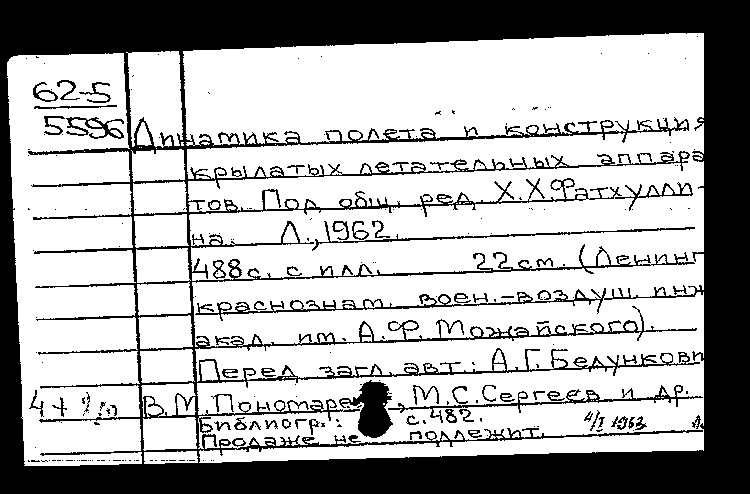 62-5
5596
Динамика полета и конструкция
крылатых летательных аппара
тов. Под общ. ред. Х.Х.Фатхулли-
на. Л., 1962.
488с. с илл. 22см. (Ленинг
краснознам. воен.-воздуш. инж
акад. им. А.Ф. Можайского).
Перед загл. авт.: А.Г.Бедункови
В.М.Пономаре , М.С.Сергеев и др.
Библиогр.: с.482.
Продаже не подлежит. 4/I 1963